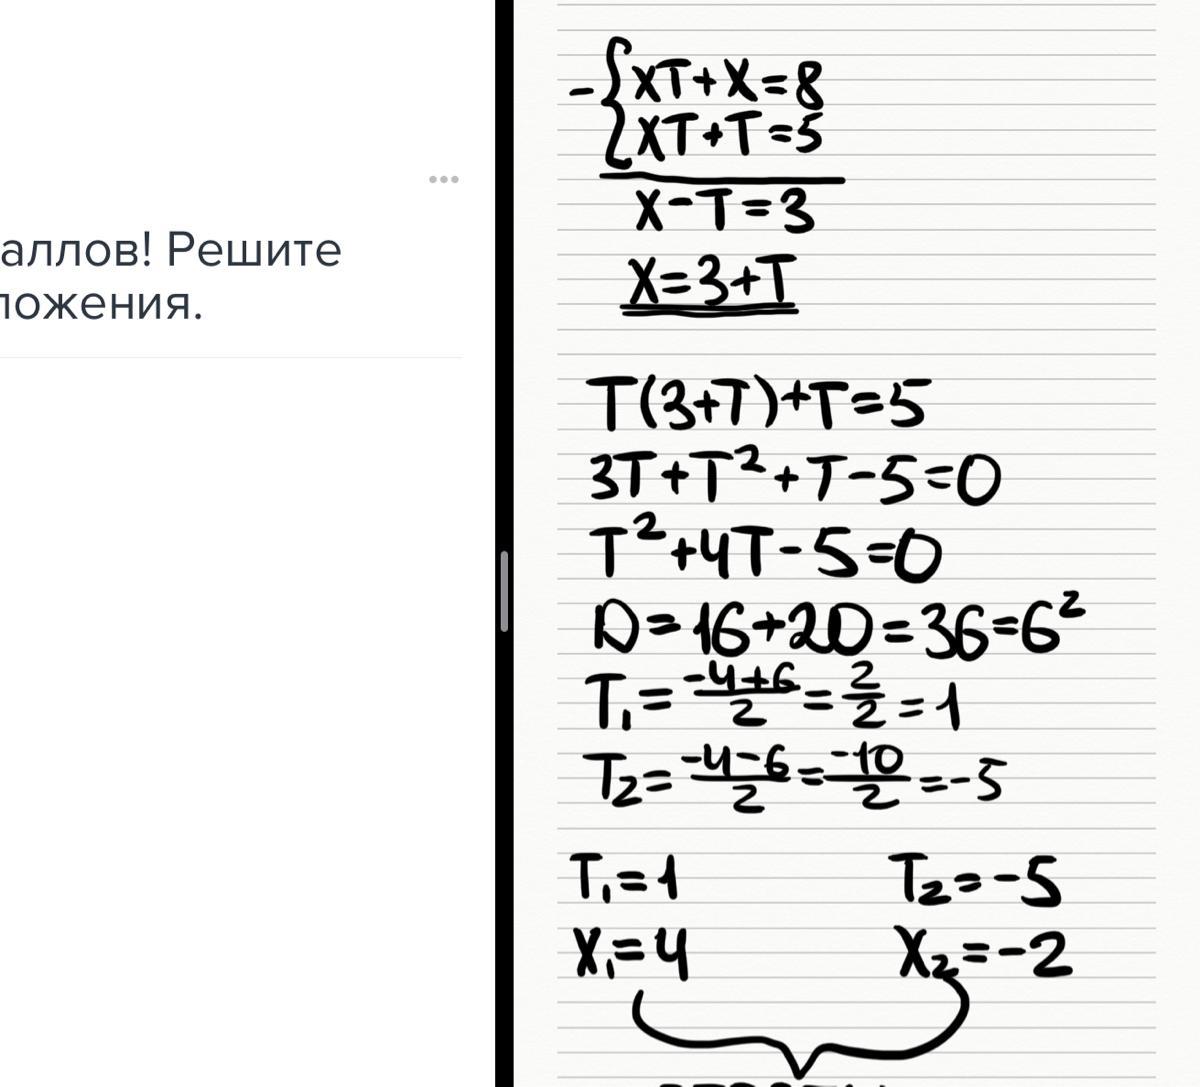 аллов! Решите
ложения.
- { XT+X=8
XT+T=5
X-T=3
X=3+T
T(3+T)+T=5
3T+T²+T-5=0
T²+4T-5=0
D=16+20=36=6²
T₁=(-4+6)/2=2/2=1
T₂=(-4-6)/2=(-10)/2=-5
T₁=1 T₂=-5
X₁=4 X₂=-2